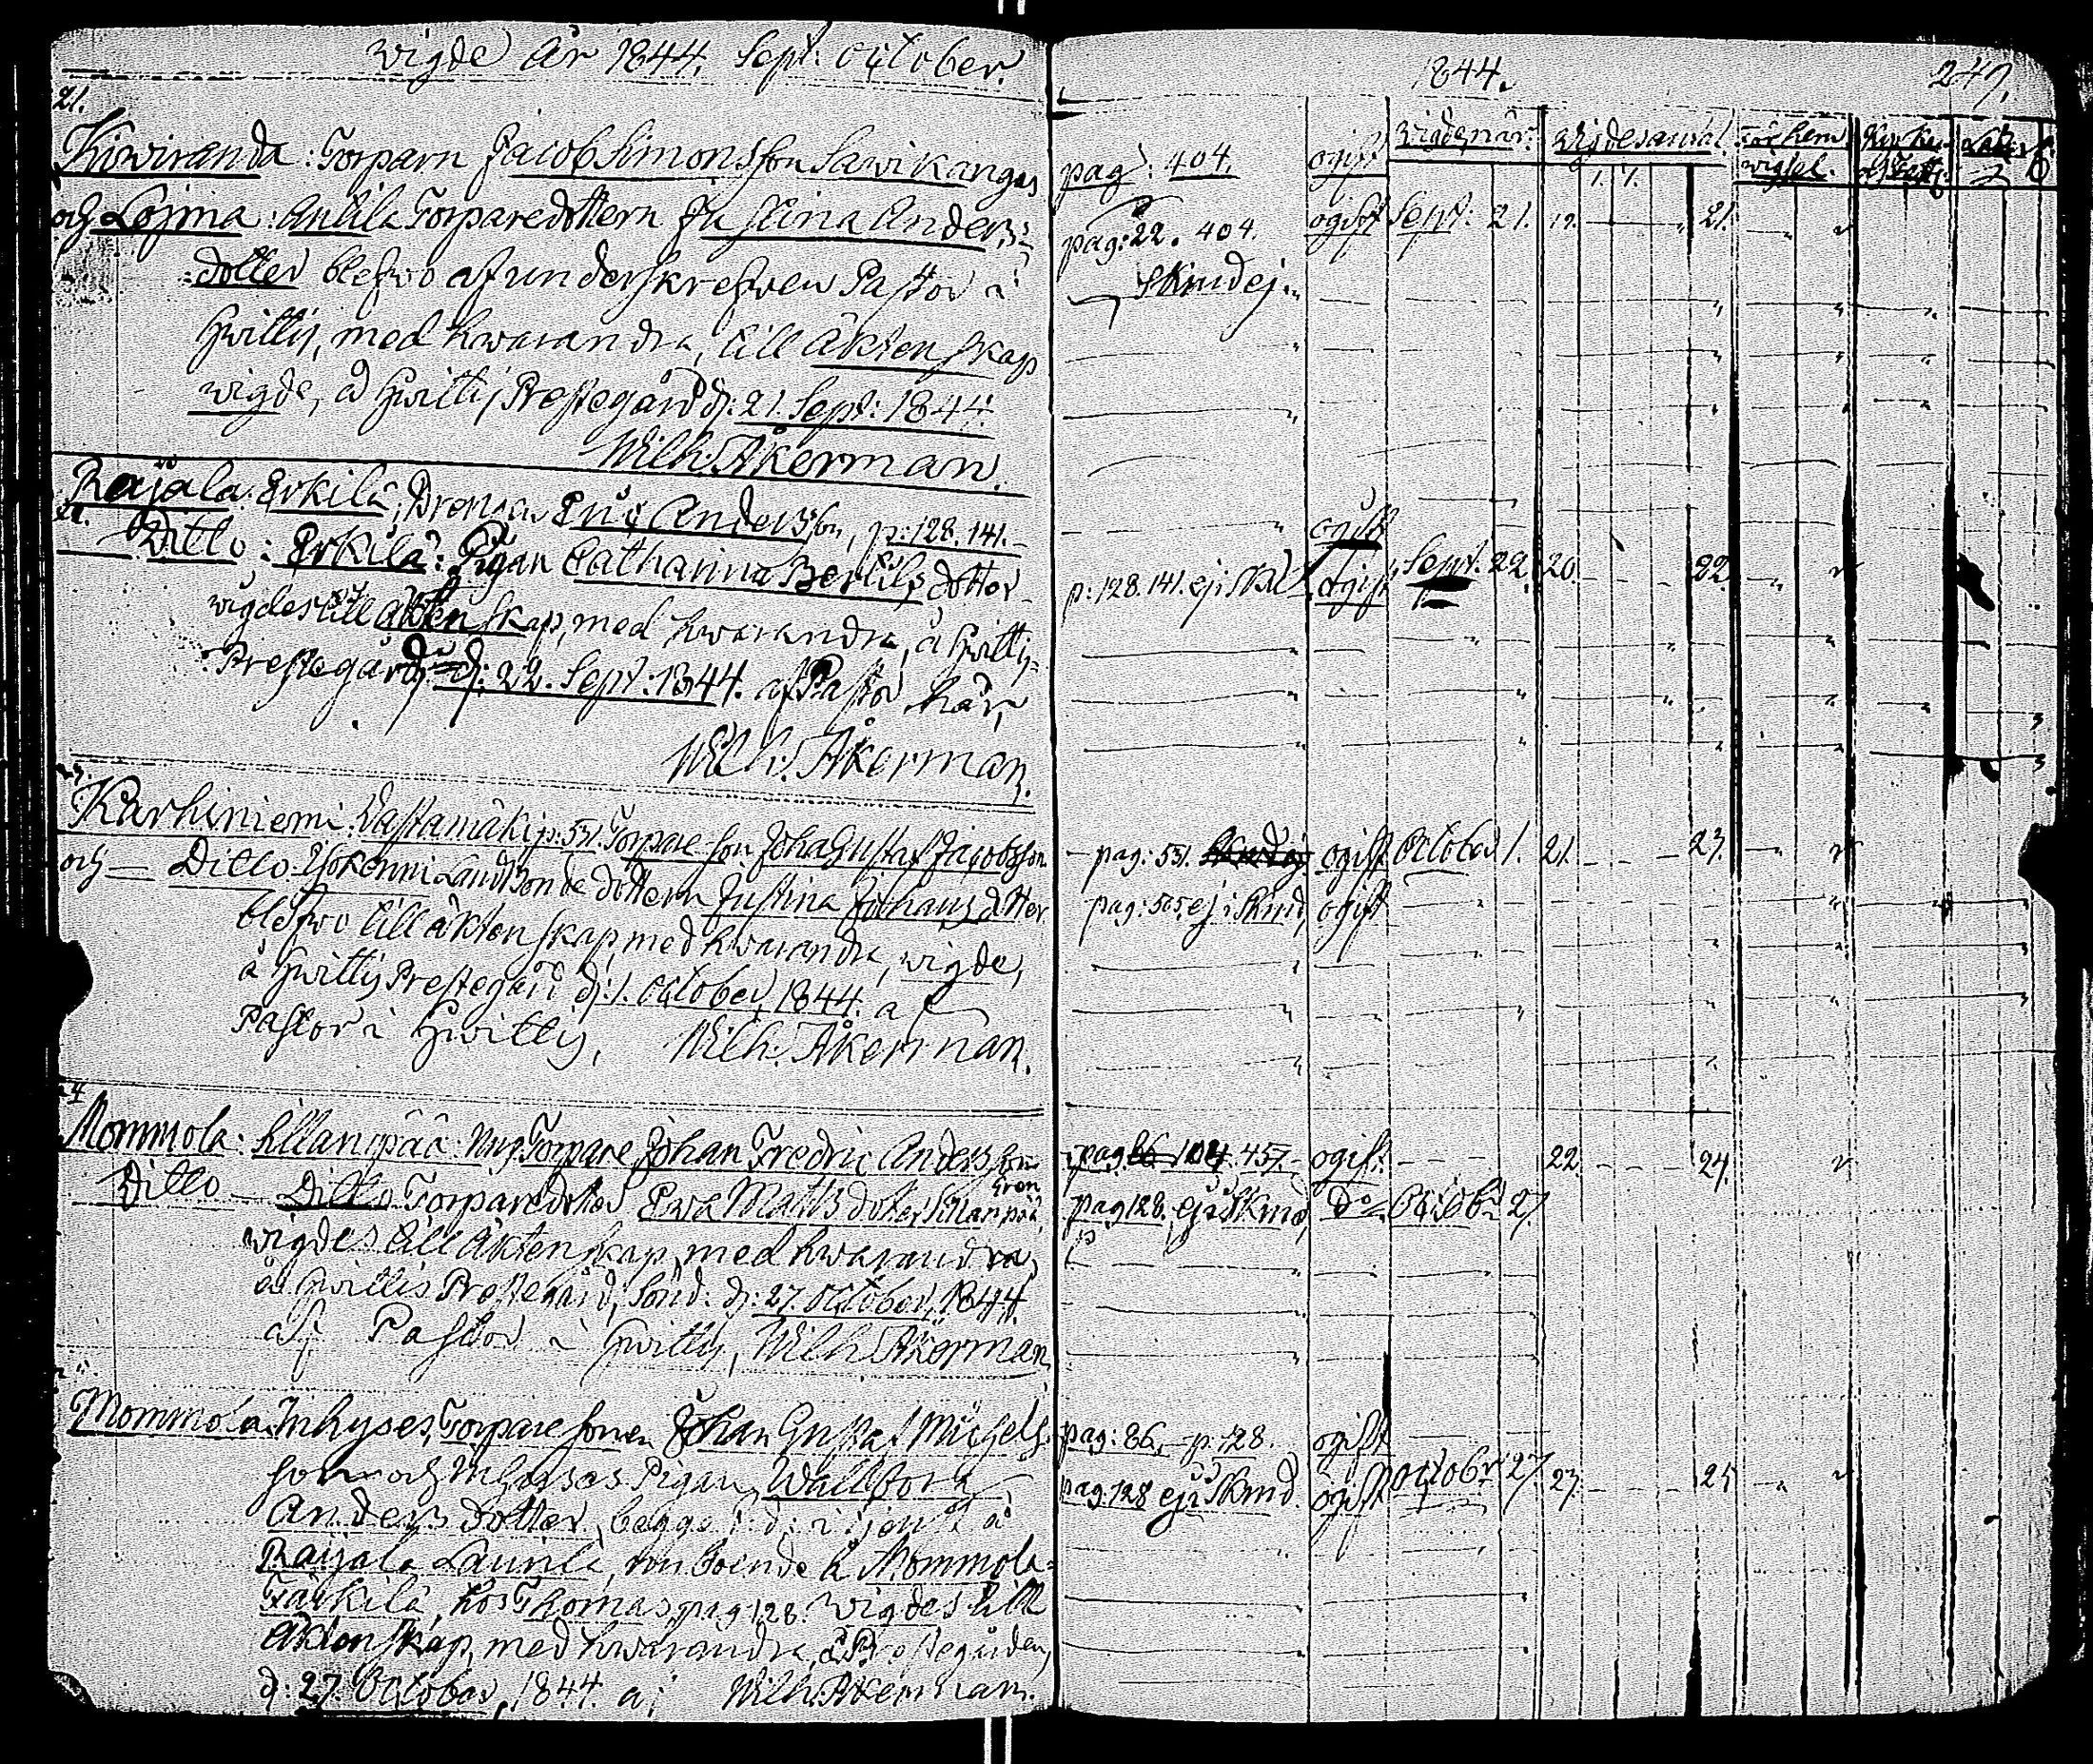 wigde År 1844. Sept: October.
21.
Kiwiranda: Torparn Jacob Simonsson Sawikangas
och Lojma: Anlila Torparedottern Justina Anders=
=dotter blefwo af underskrefwen Pastor i
Hwittis, med hwarandra, till Äktenskap
wigde, å Hwittis Prestegård d: 21. Sept: 1844.
Wilh. Åkerman.
Raijala: Erkilä, Drengen Eric Andersson, p: 128. 141.
22.
Ditto: Erkilä: Pigan Catharina Bertils dotter
wigdes till äktenskap, med hwarandra, å Hwittis=
Prestegård d: 22. Sept: 1844. af Pastor här,
Wilh. Åkerman.
23.
Karhiniemi: Wastamäki p: 531. Torpare son Joha Gustaf Jacobsson
och — Ditto: Landbonde dottern Justina Johans dotter
blefwo till äktenskap, med hwarandra, wigde,
å Hwittis Prestegård d: 1. October, 1844. af
Pastor i Hwittis, Wilh. Åkerman.
24
Mommola: Sillanpää: Torpare Johan Fredric Andersson
Ditto — Ditto Torparedotter Ewa Matts dotter Sillanpää,
wigdes till Äktenskap, med hwarandra,
å Hwittis Prestegård, Sönd: d: 27. October, 1844.
af Pastor i Hwittis, Wilh. Åkerman.
Mommola Inhyses, Torpare sonen Johan Gustaf Michels=
son och Inhyses Pigan Wallborg
Anders dotter, begge i tjenst å
Raijala Launila, boende å Mommola=
Tärkilä, hos Thomas, pag 128. wigdes till
Äktenskap, med hwarandra, å Prestegården,
d: 27. October, 1844. af Wilh. Åkerman.
1844. 247.
wigde, när. wigdes antal
wigsel.
pag: 404. ogift
pag: 22. 404. ogift Sept: 21. 19. 21.
Skmd ej
ogift
p: 128. 141. ej i Skd ogift Sept. 22. 20. 22
pag: 531. ogift October 1. 21. 23.
pag: 505 ej i Skmd, ogift
pag 86 104. 457. ogift 22. 24.
pag 128. ej i Skmd do October 27.
pag: 86, p. 128. ogift
pag. 128 ej i Skmd. ogift Octobr 27. 23. 25